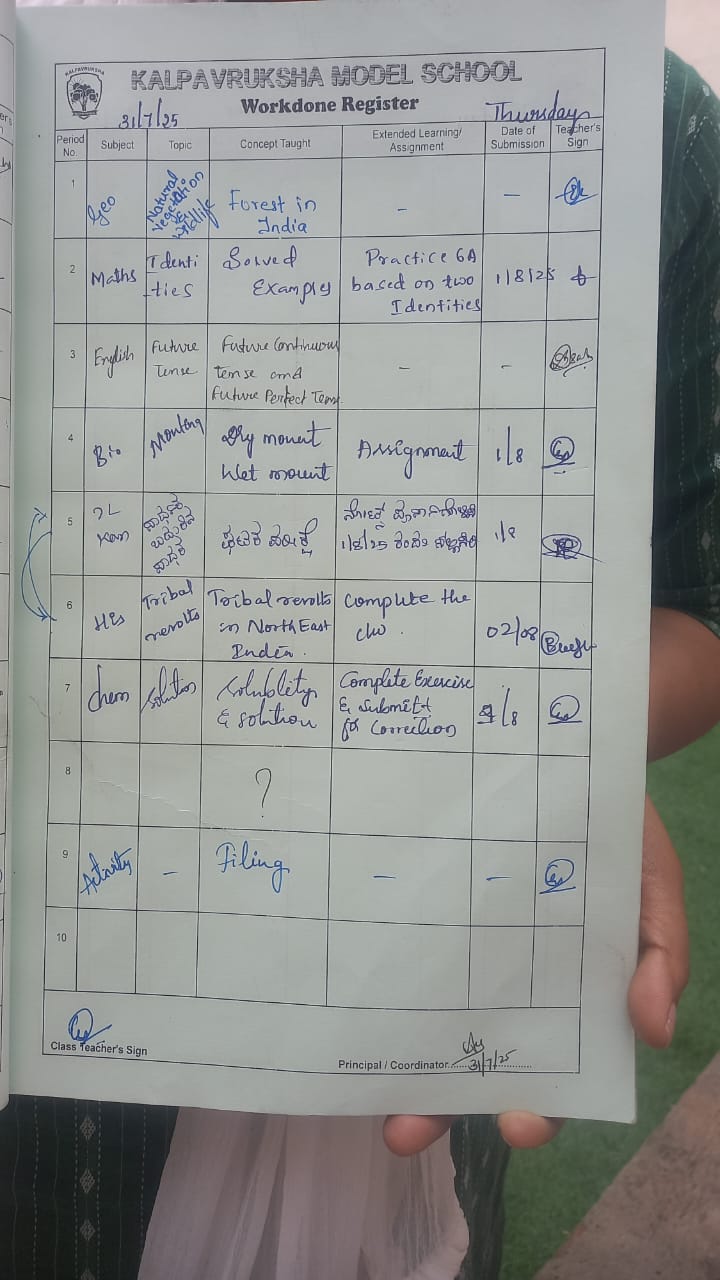 KALPAVRUKSHA
KALPAVRUKSHA MODEL SCHOOL
Workdone Register
31/7/25
Thursday
Period No.
Subject
Topic
Concept Taught
Extended Learning/ Assignment
Date of Submission
Teacher's Sign
1
Geo
Natural
Vegetation
&
wildlife
Forest in
India
-
-
2
Maths
Identi
-ties
Solved
Examples
Practice 6A
based on two
Identities
1/8/25
3
English
Future
Tense
Future Continuous
tense and
Future Perfect Tense
-
-
4
Bio
Dry mount
Wet mount
Assignment
1/8
5
2L
Kan
1/8/25
1/8
6
His
Tribal
revolts
Tribal revolts
in North East
India.
Complete the
02/08
7
Chem
Solution
Solublity
& solution
Complete Exercise
& submitt
for Correction
/8
8
?
9
Activity
-
Filing
-
-
10
Class Teacher's Sign
Principal / Coordinator
31/7/25